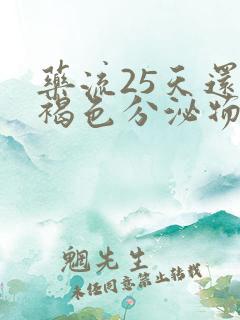 藥流25天還
褐色分泌物
魍先生
未经同意禁止转载